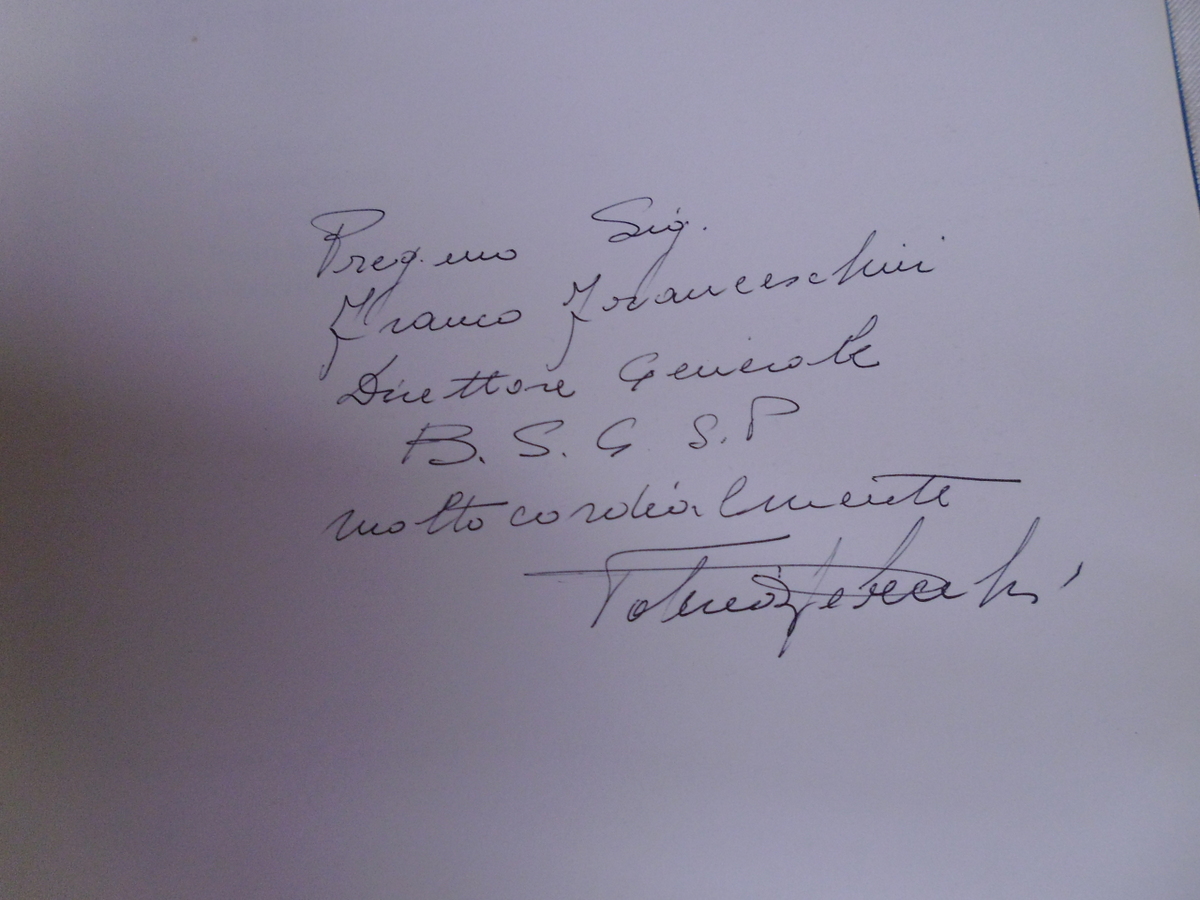 Preg.mo Sig.
Franco Franceschini
Direttore Generale
B. S. G S. P
molto cordialmente